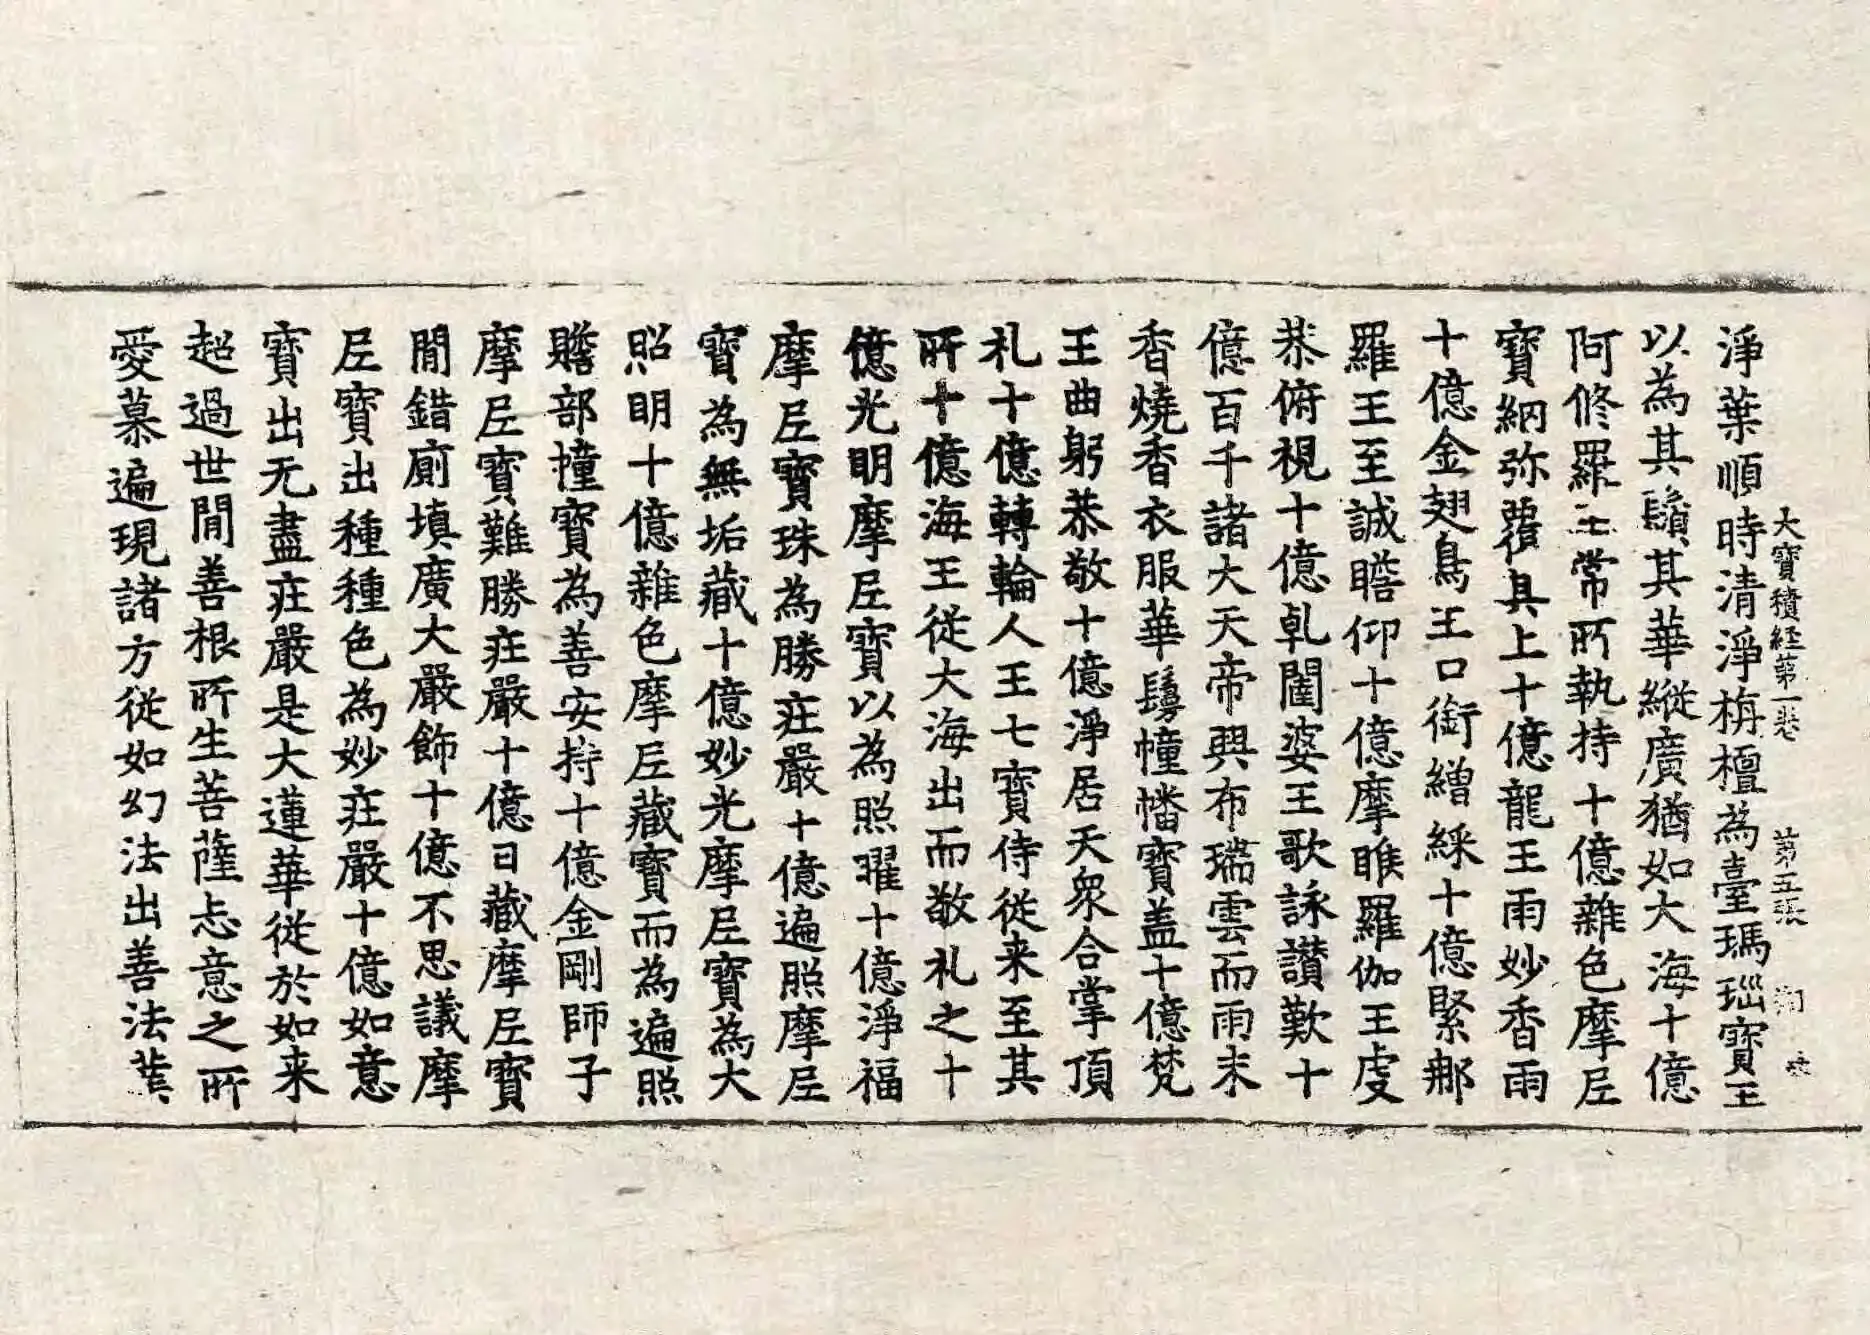 大寶積経第一卷 第五張
淨葉順時清淨栴檀為臺瑪瑙寶王
以為其鬚其華縱廣猶如大海十億
阿修羅王常所執持十億雜色摩尼
寶網弥覆其上十億龍王雨妙香雨
十億金翅鳥王口銜繒綵十億緊那
羅王至誠瞻仰十億摩睺羅伽王虔
恭俯視十億乹闥婆王歌詠讃歎十
億百千諸大天帝興布瑞雲而雨末
香燒香衣服華鬘幢幡寶盖十億梵
王曲躬恭敬十億淨居天眾合掌頂
礼十億轉輪人王七寶侍從来至其
所十億海王從大海出而敬礼之十
億光明摩尼寶以為照曜十億淨福
摩尼寶珠為勝莊嚴十億遍照摩尼
寶為無垢藏十億妙光摩尼寶為大
照明十億雜色摩尼藏寶而為遍照
贍部撞寶為善安持十億金剛師子
摩尼寶難勝莊嚴十億日藏摩尼寶
間錯廁填廣大嚴飾十億不思議摩
尼寶出種種色為妙莊嚴十億如意
寶出无盡莊嚴是大蓮華從於如来
超過世間善根所生菩薩志意之所
愛慕遍現諸方從如幻法出善法業